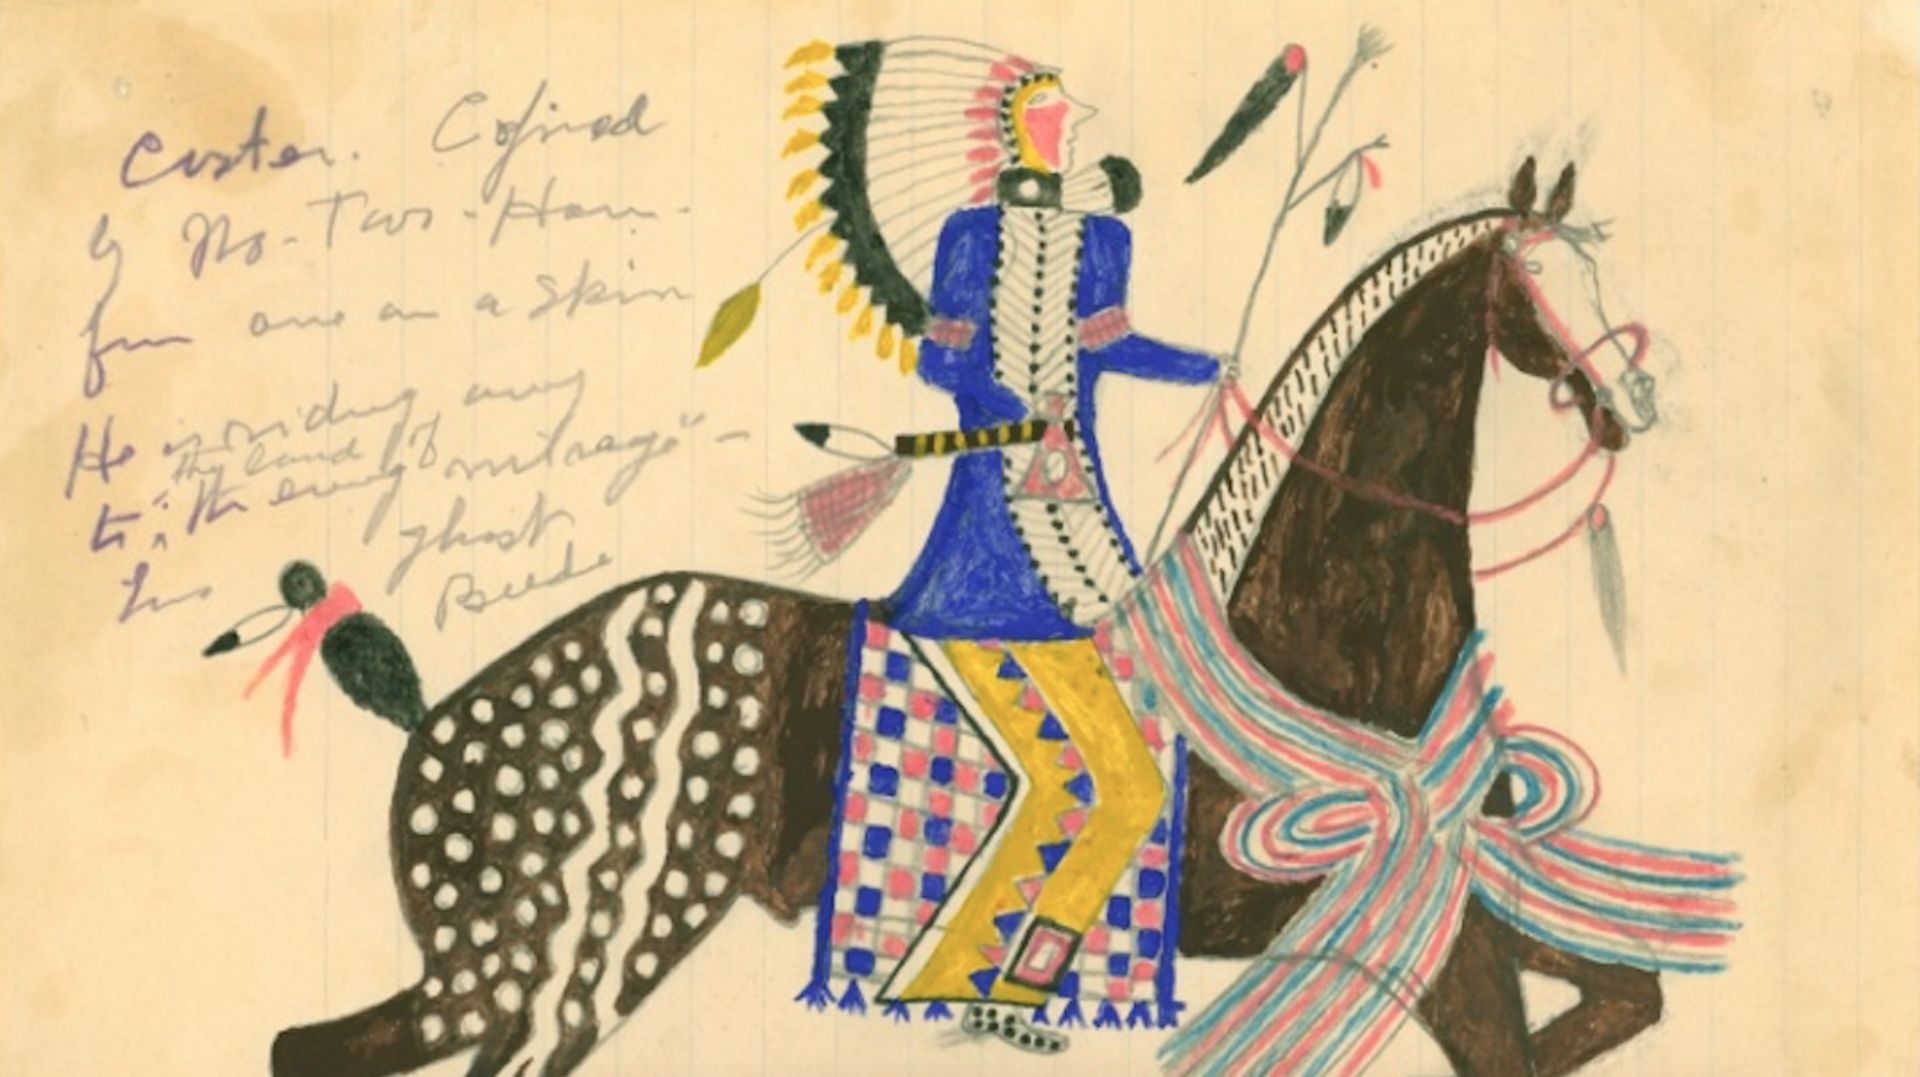 Custer. Copied
by No-Two-Horn.
from one on a skin
He is riding away
the land of
to "the living mirage" -
ghost
Beede